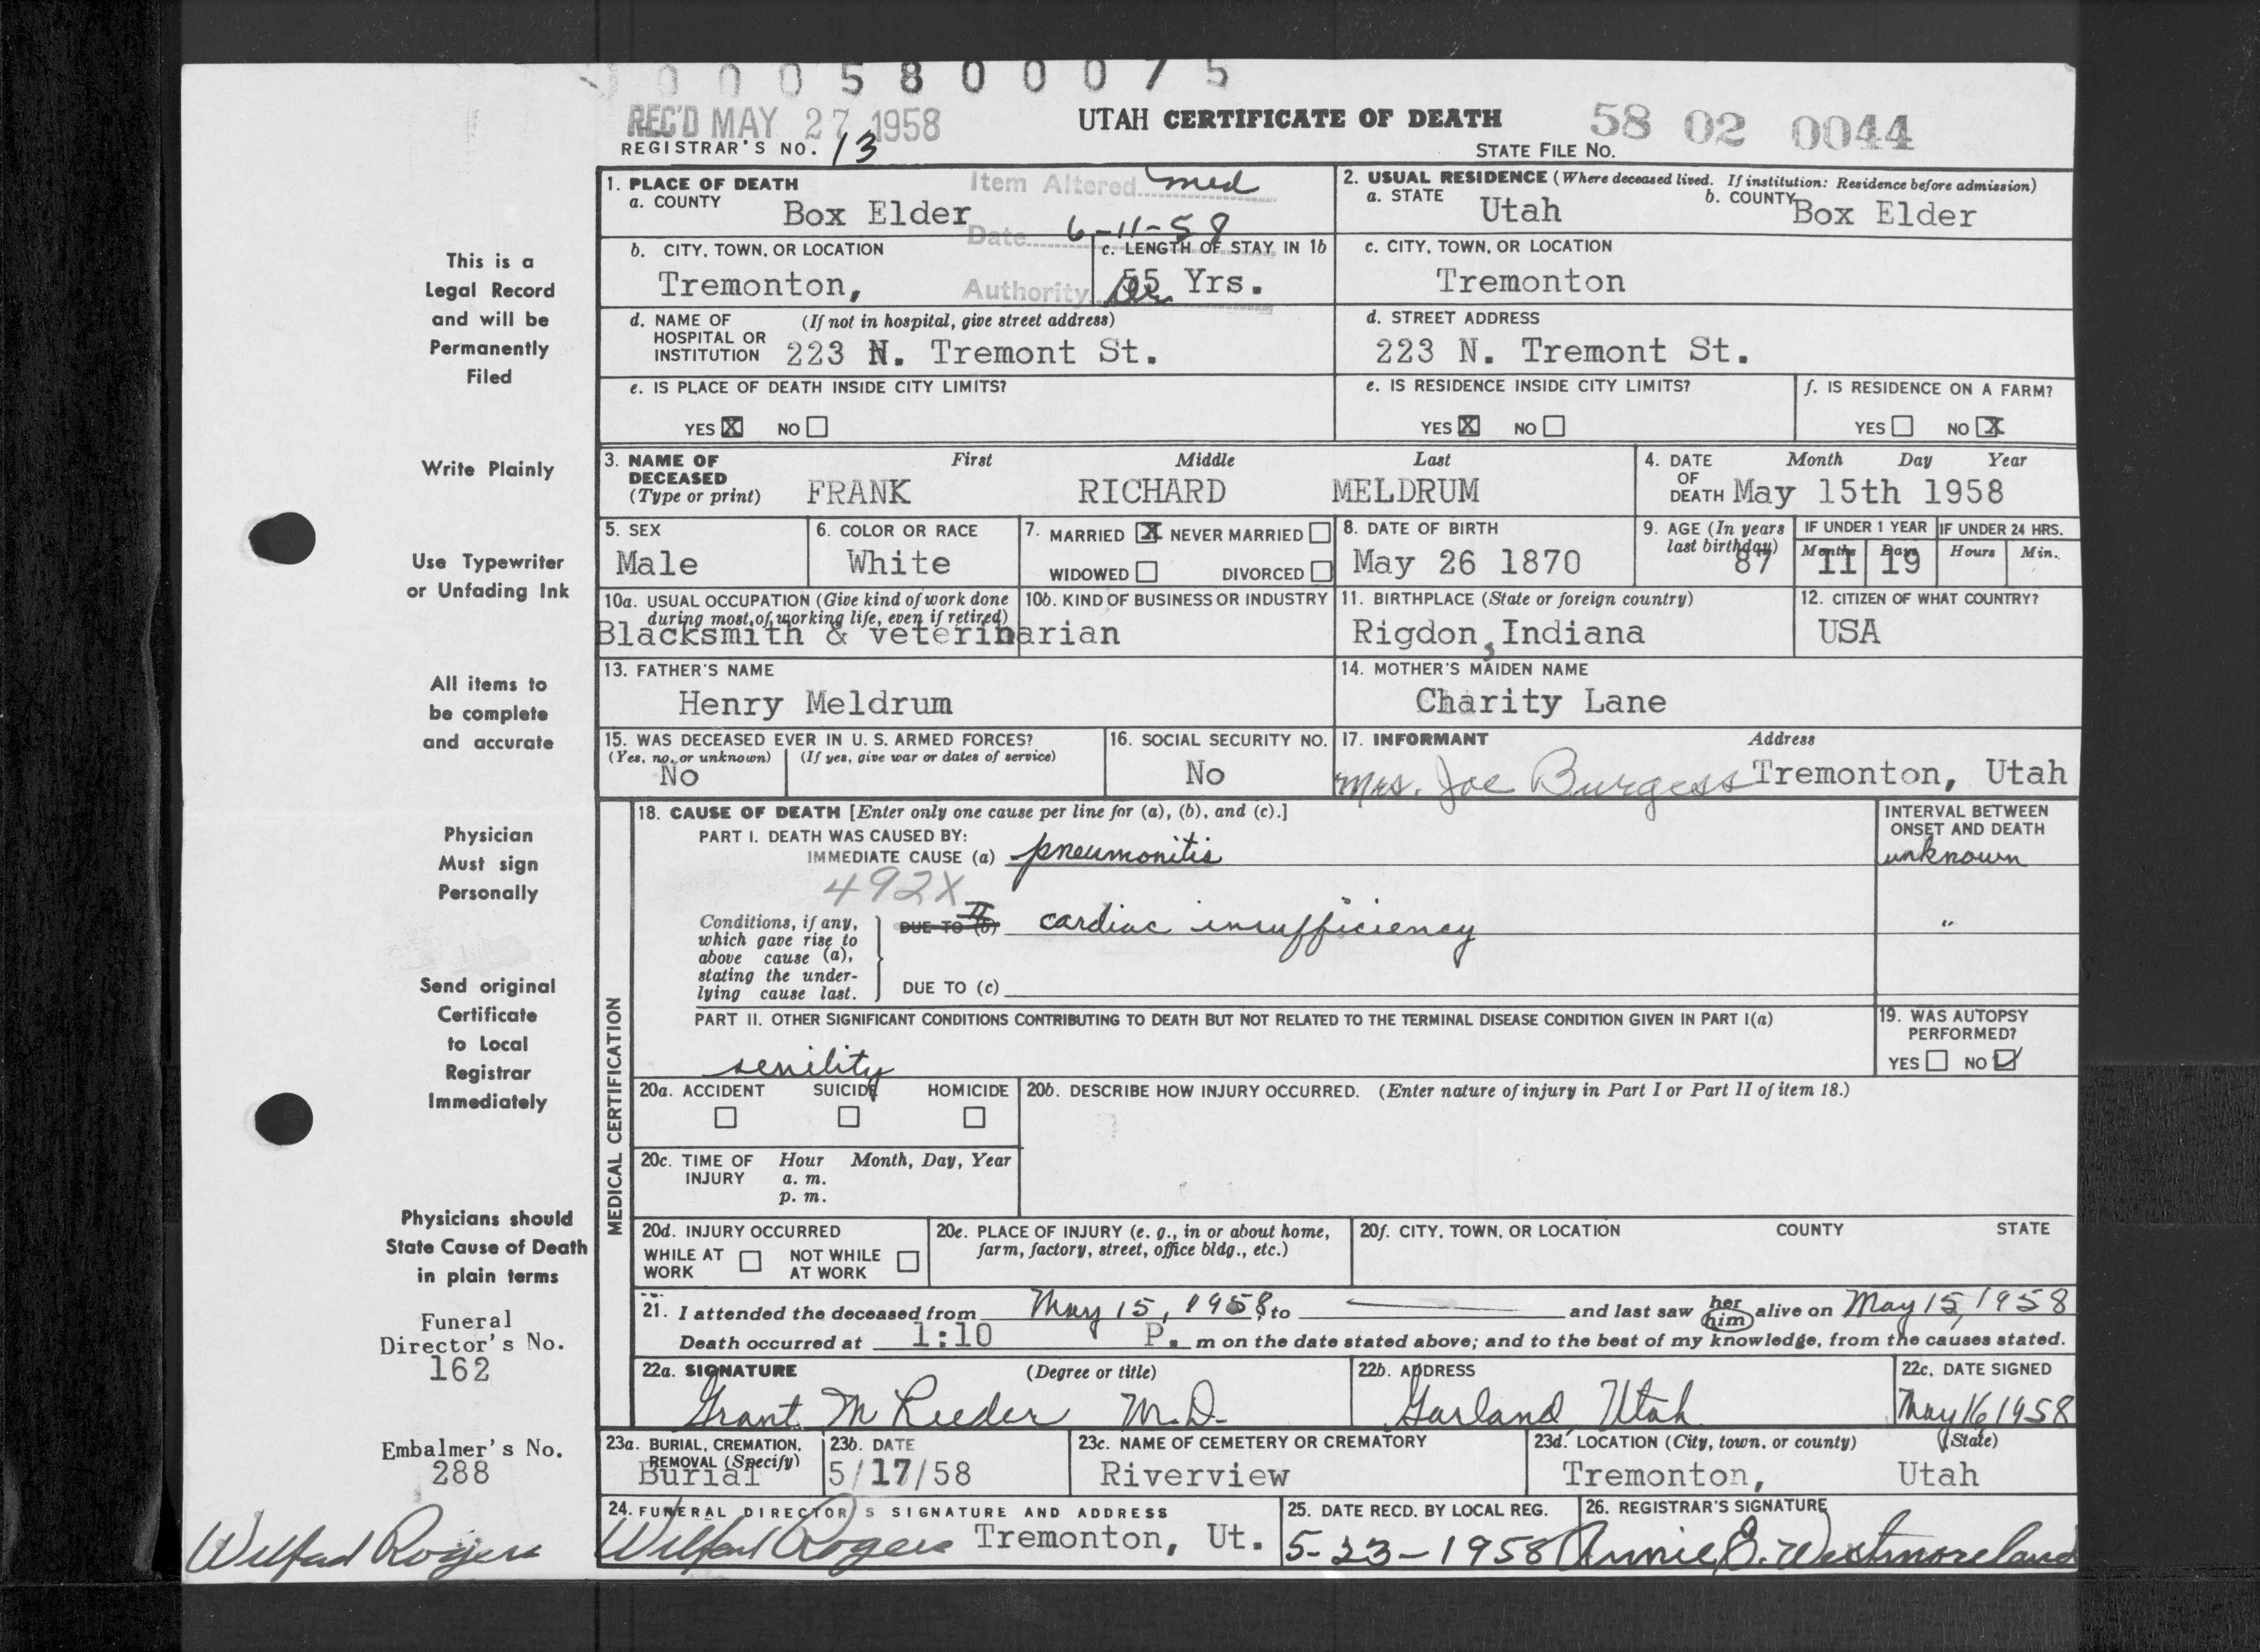 0 0 0 5 8 0 0 0 7 5
REC'D MAY 27 1958
UTAH CERTIFICATE OF DEATH
58 02 0044
REGISTRAR'S NO. 13
STATE FILE NO.
1. PLACE OF DEATH
Item Altered med
a. COUNTY Box Elder
Date 6-11-58
2. USUAL RESIDENCE (Where deceased lived. If institution: Residence before admission)
a. STATE Utah b. COUNTY Box Elder
b. CITY, TOWN, OR LOCATION Tremonton,
Authority
c. LENGTH OF STAY IN 1b 55 Yrs.
c. CITY, TOWN, OR LOCATION Tremonton
d. NAME OF HOSPITAL OR INSTITUTION (If not in hospital, give street address) 223 N. Tremont St.
d. STREET ADDRESS 223 N. Tremont St.
e. IS PLACE OF DEATH INSIDE CITY LIMITS?
YES X NO
e. IS RESIDENCE INSIDE CITY LIMITS?
YES X NO
f. IS RESIDENCE ON A FARM?
YES NO X
3. NAME OF DECEASED (Type or print)
First Middle Last
FRANK RICHARD MELDRUM
4. DATE OF DEATH Month Day Year
May 15th 1958
5. SEX Male
6. COLOR OR RACE White
7. MARRIED X NEVER MARRIED
WIDOWED DIVORCED
8. DATE OF BIRTH May 26 1870
9. AGE (In years last birthday) 87
IF UNDER 1 YEAR Months 11 Days 19
IF UNDER 24 HRS. Hours Min.
10a. USUAL OCCUPATION (Give kind of work done during most of working life, even if retired)
10b. KIND OF BUSINESS OR INDUSTRY
Blacksmith & veterinarian
11. BIRTHPLACE (State or foreign country) Rigdon, Indiana
12. CITIZEN OF WHAT COUNTRY? USA
13. FATHER'S NAME Henry Meldrum
14. MOTHER'S MAIDEN NAME Charity Lane
15. WAS DECEASED EVER IN U. S. ARMED FORCES?
(Yes, no, or unknown) (If yes, give war or dates of service)
No
16. SOCIAL SECURITY NO. No
17. INFORMANT Address
Mrs. Joe Burgess Tremonton, Utah
MEDICAL CERTIFICATION
18. CAUSE OF DEATH [Enter only one cause per line for (a), (b), and (c).]
INTERVAL BETWEEN ONSET AND DEATH
PART I. DEATH WAS CAUSED BY:
IMMEDIATE CAUSE (a) pneumonitis unknown
492X
Conditions, if any, which gave rise to above cause (a), stating the underlying cause last.
DUE TO (b) II cardiac insufficiency "
DUE TO (c)
PART II. OTHER SIGNIFICANT CONDITIONS CONTRIBUTING TO DEATH BUT NOT RELATED TO THE TERMINAL DISEASE CONDITION GIVEN IN PART I(a)
senility
19. WAS AUTOPSY PERFORMED?
YES NO ✓
20a. ACCIDENT SUICIDE HOMICIDE
20b. DESCRIBE HOW INJURY OCCURRED. (Enter nature of injury in Part I or Part II of item 18.)
20c. TIME OF INJURY Hour Month, Day, Year
a. m.
p. m.
20d. INJURY OCCURRED
WHILE AT WORK NOT WHILE AT WORK
20e. PLACE OF INJURY (e. g., in or about home, farm, factory, street, office bldg., etc.)
20f. CITY, TOWN, OR LOCATION COUNTY STATE
21. I attended the deceased from May 15, 1958, to and last saw her him alive on May 15, 1958
Death occurred at 1:10 P. m on the date stated above; and to the best of my knowledge, from the causes stated.
22a. SIGNATURE (Degree or title)
Grant M Reeder M.D.
22b. ADDRESS Garland Utah
22c. DATE SIGNED May 16 1958
23a. BURIAL, CREMATION, REMOVAL (Specify) Burial
23b. DATE 5/17/58
23c. NAME OF CEMETERY OR CREMATORY Riverview
23d. LOCATION (City, town, or county) (State)
Tremonton, Utah
24. FUNERAL DIRECTOR'S SIGNATURE AND ADDRESS
Wilford Rogers Tremonton, Ut.
25. DATE RECD. BY LOCAL REG. 5-23-1958
26. REGISTRAR'S SIGNATURE Annie E. Westmoreland
This is a
Legal Record
and will be
Permanently
Filed
Write Plainly
Use Typewriter
or Unfading Ink
All items to
be complete
and accurate
Physician
Must sign
Personally
Send original
Certificate
to Local
Registrar
Immediately
Physicians should
State Cause of Death
in plain terms
Funeral
Director's No.
162
Embalmer's No.
288
Wilford Rogers